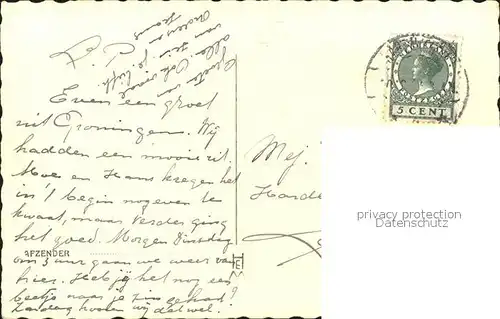 B. P.
Even een groet
uit Groningen. Wij
hadden een mooie rit.
Moe en Hans kregen het
in 't begin nog even te
kwaat, maar verder ging
het goed. Morgen Dinsdag
AFZENDER
om 3 uur gaan we weer van
hier. Heb jij het nog een
beetje naar je zin gehad?
Zondag komen wij dat wel.
Groeten van
alle. Ook
van
Mej.
Harde
5 CENT
privacy protection
Datenschutz